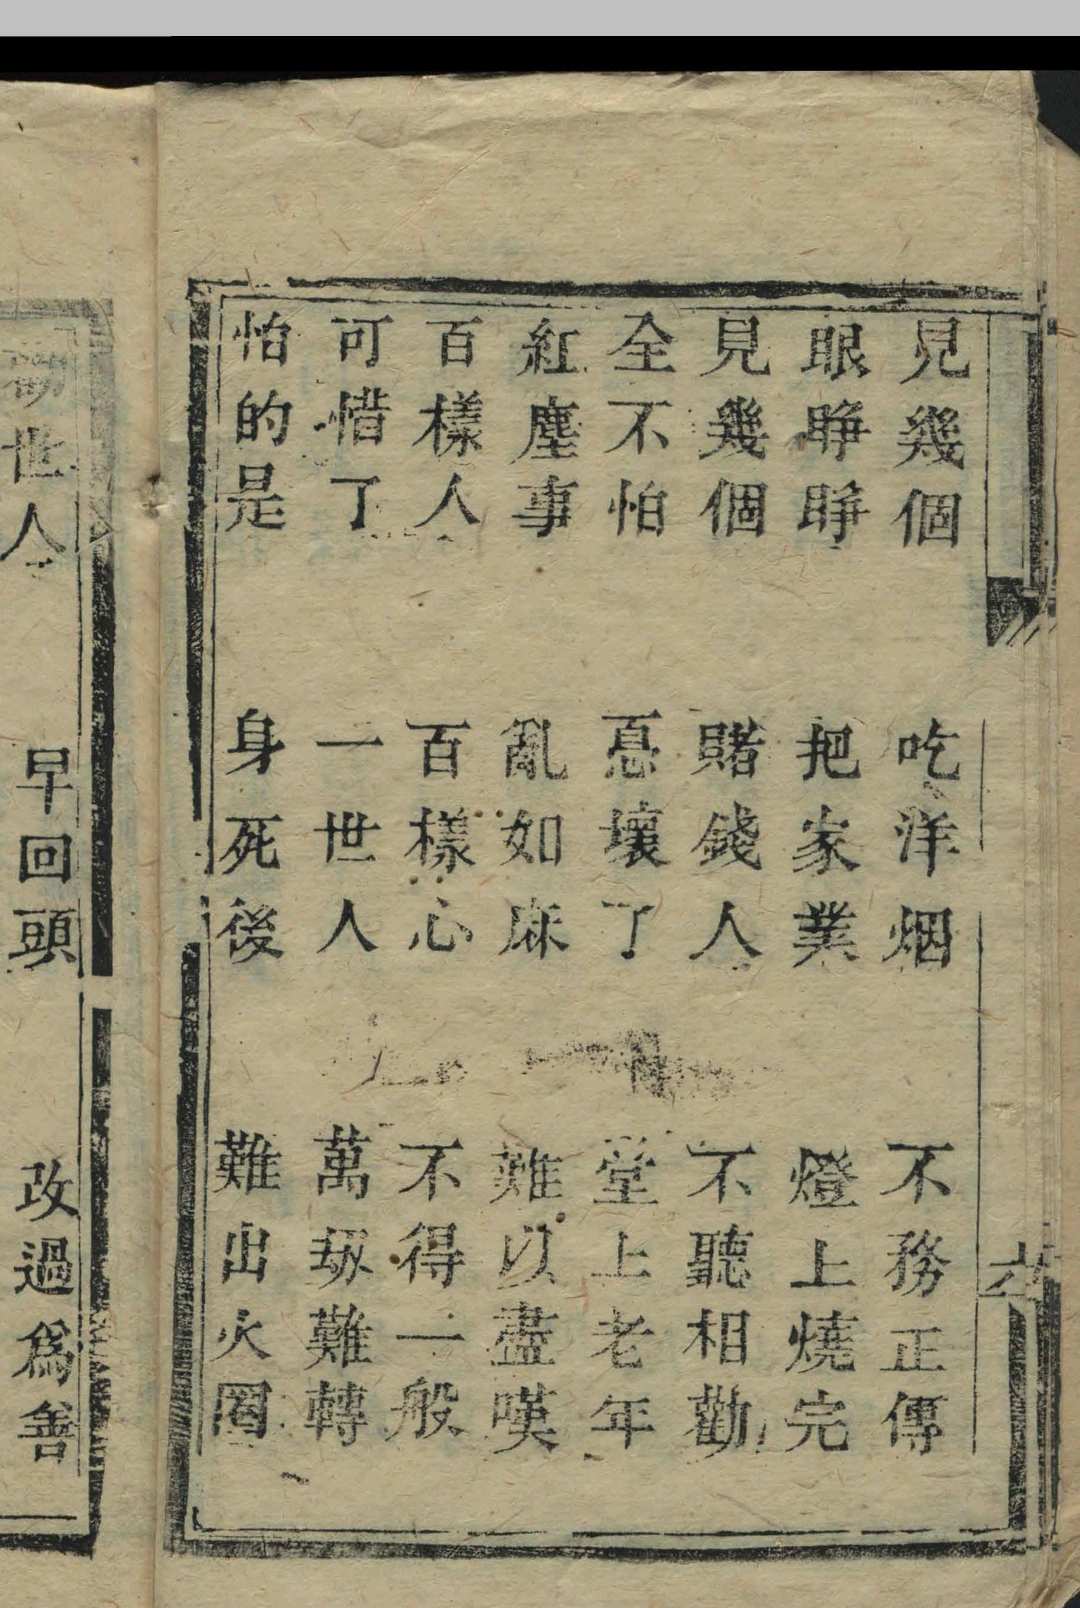 見幾個 吃洋烟 不務正傳
眼睜睜 把家業 燈上燒完
見幾個 賭錢人 不聽相勸
全不怕 惪壞了 堂上老年
紅塵事 亂如麻 難以盡嘆
百樣人 百樣心 不得一般
可惜了 一世人 萬刼難轉
怕的是 身死後 難出火圈
世人 早回頭 改過爲善